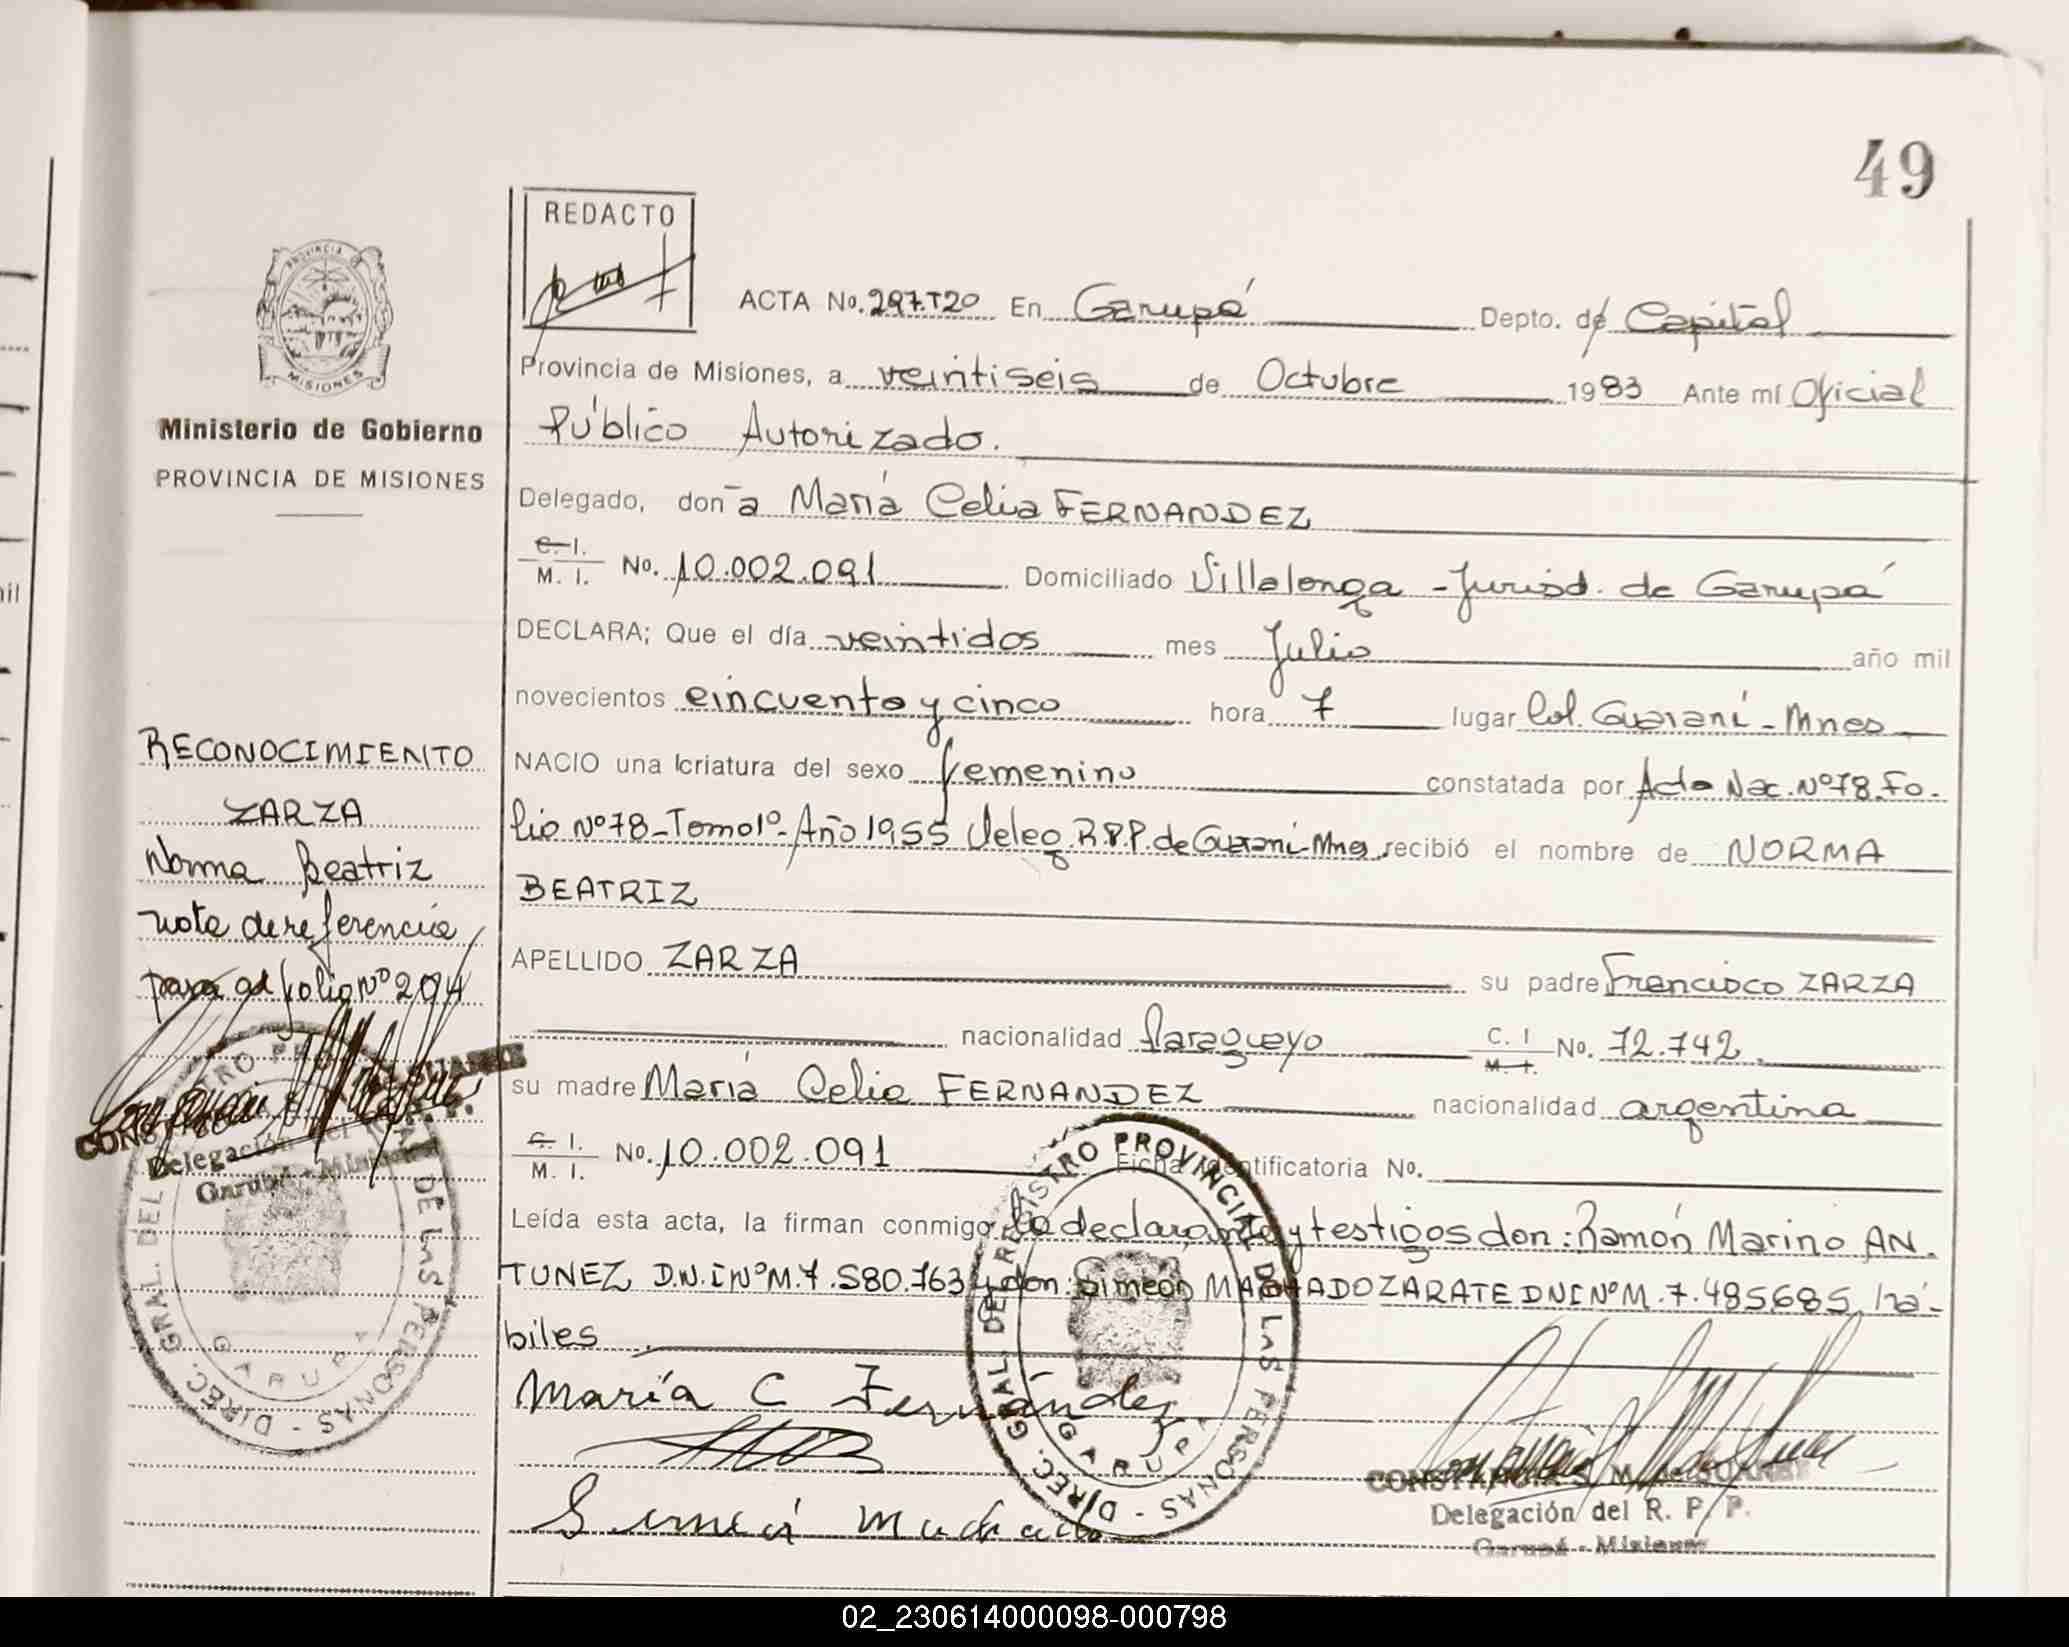 49
REDACTO
PROVINCIA DE
MISIONES
Ministerio de Gobierno
PROVINCIA DE MISIONES
ACTA No. 297.T20 En Garupá Depto. de Capital
Provincia de Misiones, a veintiseis de Octubre 1983 Ante mí Oficial
Público Autorizado.
Delegado, don a María Celia FERNANDEZ
C. I.
M. I. No. 10.002.091 Domiciliado Villalonga - Jurisd. de Garupá
DECLARA; Que el día veintidos mes Julio año mil
novecientos cincuenta y cinco hora 7 lugar Col. Guaraní - Mnes
NACIO una criatura del sexo femenino constatada por Acta Nac. Nº 78. Fo.
lio Nº 78 - Tomo 1º - Año 1955 Deleg. R.P.P. de Guaraní - Mnes recibió el nombre de NORMA
BEATRIZ
APELLIDO ZARZA su padre Francisco ZARZA
nacionalidad Paraguayo C. I
M. I. No. 72.742
su madre María Celia FERNANDEZ nacionalidad argentina
C. I.
M. I. No. 10.002.091 Ficha Identificatoria No.
Leída esta acta, la firman conmigo la declarante y testigos don: Ramón Marino AN.
TUNEZ D.N.I Nº M.7.580.763 y don: Simeón MACHADO ZARATE DNI Nº M.7.485685, há-
biles
María C Fernández
Simeón Machado
RECONOCIMIENTO
ZARZA
Norma Beatriz
nota de referencia
pasa al folio Nº 204
Delegación del R. P. P.
Garupá - Misiones
DIREC. GRAL. DEL REGISTRO PROVINCIAL DE LAS PERSONAS -
GARUPA
DIREC. GRAL. DEL REGISTRO PROVINCIAL DE LAS PERSONAS -
GARUPA
Delegación del R. P. P.
Garupá - Misiones
02_230614000098-000798